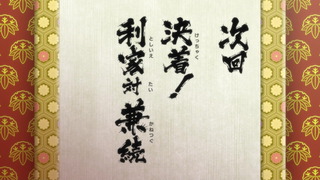 次回
決着！
けっちゃく
利家対兼続
としいえ たい かねつぐ